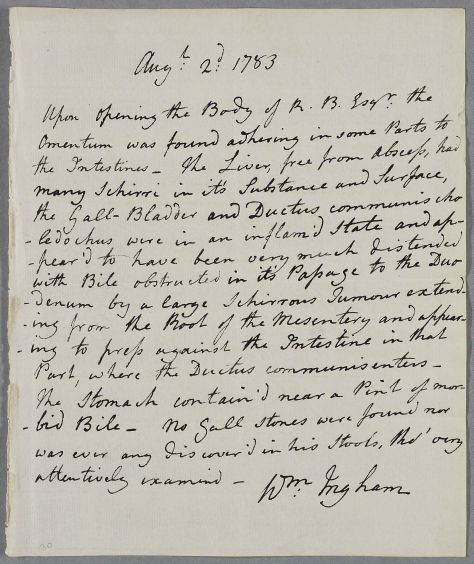 Augt. 2d. 1783
Upon opening the Body of R. B. Esqr. the
Omentum was found adhering in some Parts to
the Intestines – The Liver, free from Abscess, had
many Schirri in its Substance and Surface,
the Gall-Bladder and Ductus communis cho
-ledochus were in an inflam'd State and ap-
-pear'd to have been very much distended
with Bile obstructed in its Passage to the Duo
-denum by a large Schirrous Tumour extend-
-ing from the Root of the Mesentery and appear-
-ing to press against the Intestine in that
Part, where the Ductus communis enters –
The Stomach contain'd near a Pint of mor-
-bid Bile – No Gall stones were found nor
was ever any discover'd in his Stools, tho' very
attentively examined –
Wm. Ingham
30